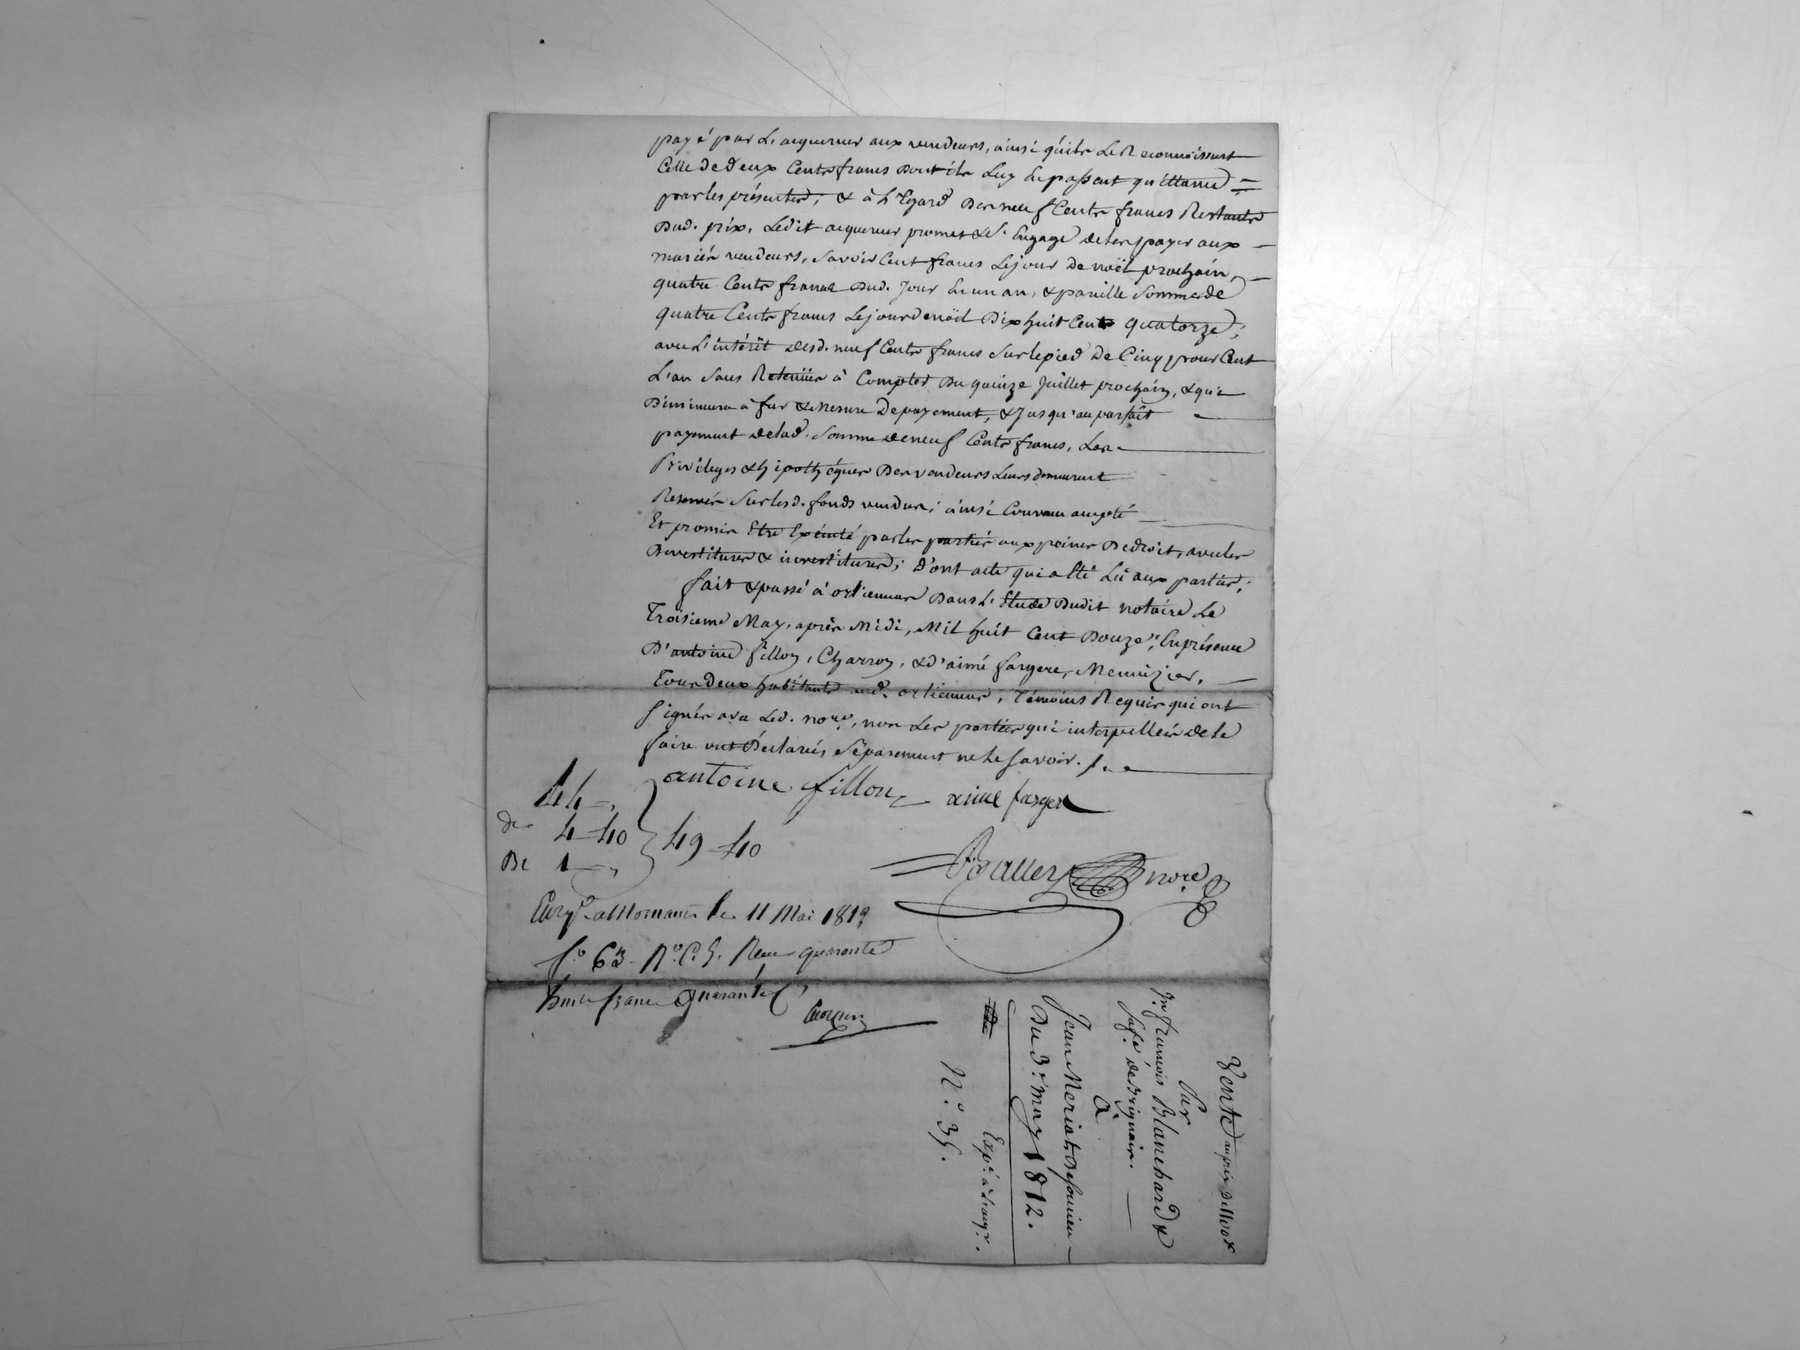 payé par L'acquereur aux vendeurs, ainsi qu'ils Le Reconnoissent
Celle de deux Cents francs Dont ils Luy En passent quittance =
par les présentes; & à L'Egard Des neuf Cents francs Restants
Dud. prix, Ledit acquereur promet & S'Engage de les payer aux
mariés vendeurs, Savoir Cent francs Le jour de noël prochain,
quatre Cents francs Dud. Jour En un an, & pareille Somme de
quatre Cents francs Le jour de noël Dix huit Cent quatorze;
avec L'intérêt desd. neuf Cents francs Sur le pied De Cinq pour Cent
L'an Sans Retenüe à Compter Du quinze Juillet prochain, & qui
Diminuera à fur & Mesure De payement, & Jusqu'au parfait
payement de lad. Somme de neuf Cents francs, Les
Privileges & hipothéques Des vendeurs Leurs demeurent
Reservés Sur lesd. fonds vendus; ainsi Convenu accepté
Et promis Etre Exécuté par les parties aux peines De droit, avec les
Devestitures & investitures; D'ont acte qui a Eté Lû aux parties;
fait & passé à orlienas Dans L'Etude Dudit notaire Le
Troisieme May, après Midi, Mil huit Cent Douze; En présence
D'antoine fillon, Charron, & d'aimé fargere, Menuizier,
Tous Deux habitants aud. orlienas; Témoins Requis qui ont
Signés avec Led. nore, non Les parties qui interpellées de le
faire ont Déclarés Séparement ne Le Savoir.
antoine fillon aimé farger
44
de 4-40 49-40
De 1
nore
Enrg. à Mornant le 11 Mai 1812
fo. 63 Ro. C. 5. Reçu quarante
francs quarante C
Vente au prix de 1100 f.
Par
Jn. françois Blanchard &
Sa fe. de Brignais.
à
Jean Meriat de Soucieu
Du 3. may 1812.
Expe. à L'acqr.
No. 35.